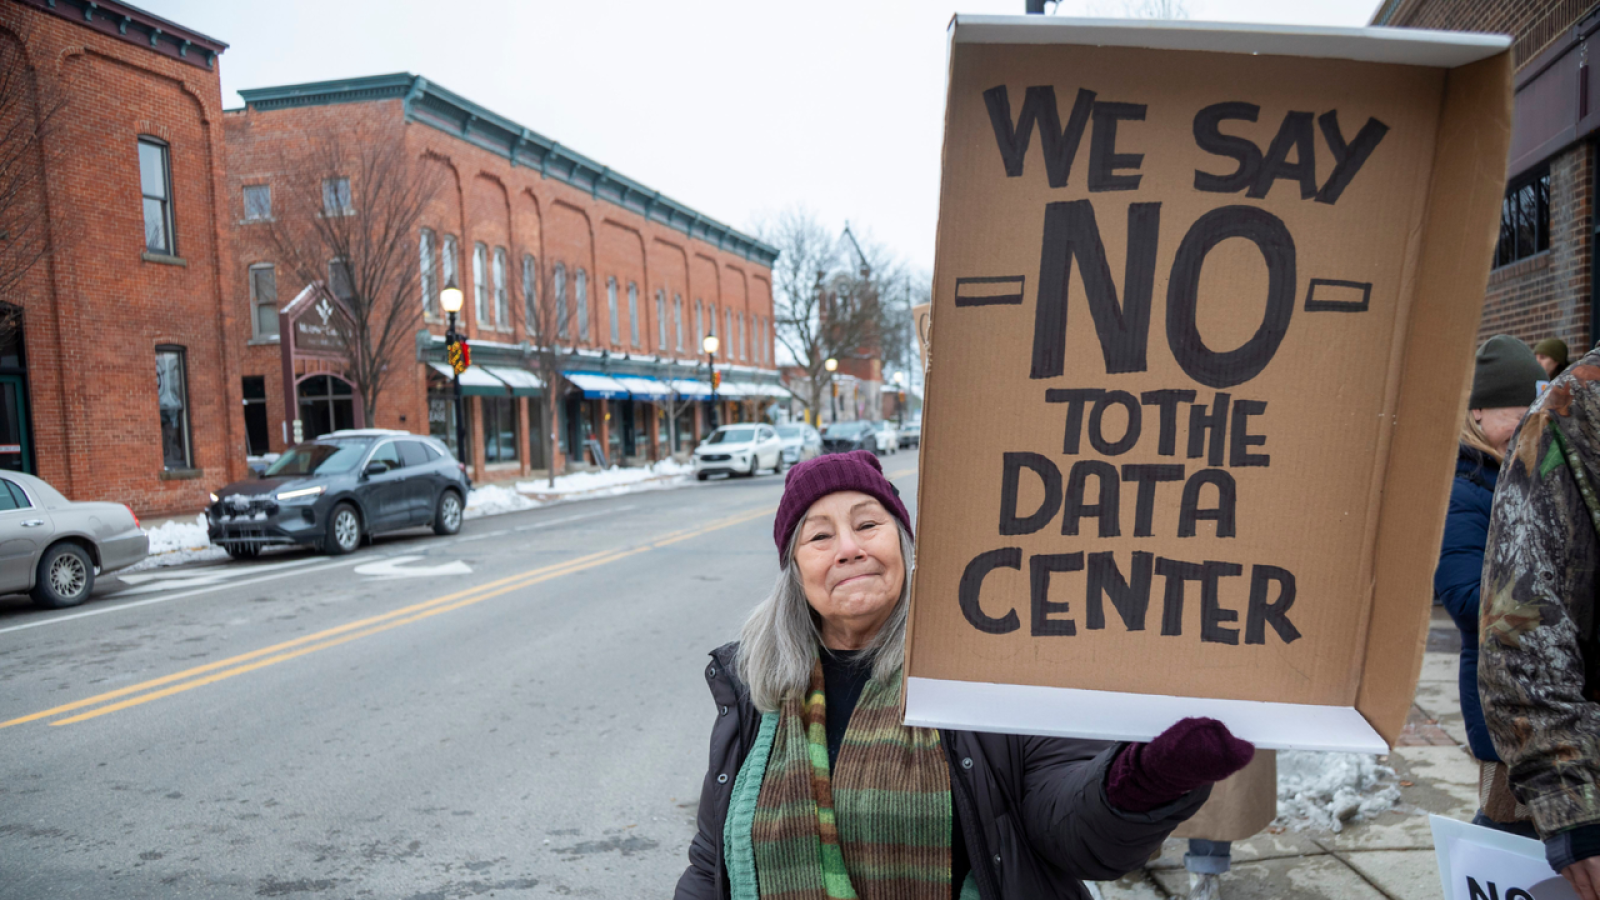 WE SAY
-NO-
TO THE
DATA
CENTER
NO